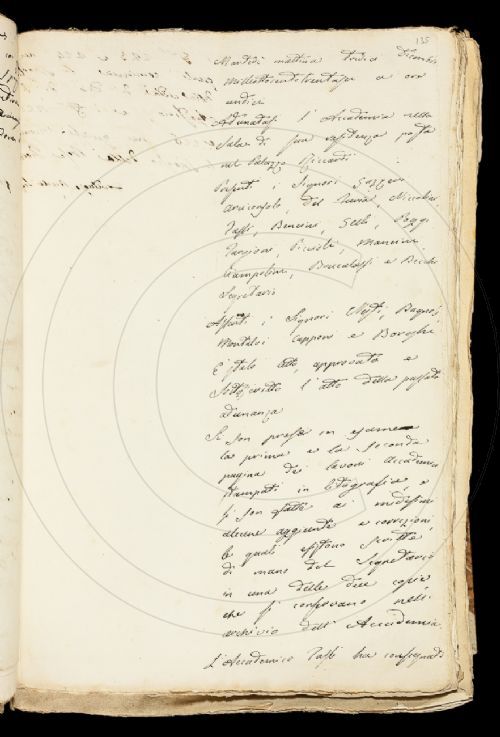 135
Martedì mattina tredici Dicembre
milleottocentotrentasei a ore
undici
Adunatasi l'Accademia nella
Sala di sua residenza posta
nel Palazzo Riccardi
Presenti i Signori Gazzeri
Arciconsolo, Del Furia, Niccolini
Tassi, Bencini, Gelli, Poggi
Targioni, Piccioli, Mannini
Ciampolini, Brucalassi e Becchi
Segretario
Assenti i Signori Nesti, Bagnoli
Montalvi Capponi e Borghi
È stato letto, approvato e
Sottoscritto l'atto della passata
adunanza
Si son prese in esame
la prima e la seconda
pagina dei lavori Accademici
stampati in litografia, e
si son fatte ai medesimi
alcune aggiunte e correzioni,
le quali esistono scritte
di mano del Segretario
in una delle due copie
che si conservano nell'
archivio dell'Accademia
L'Accademico Tassi ha consegnato